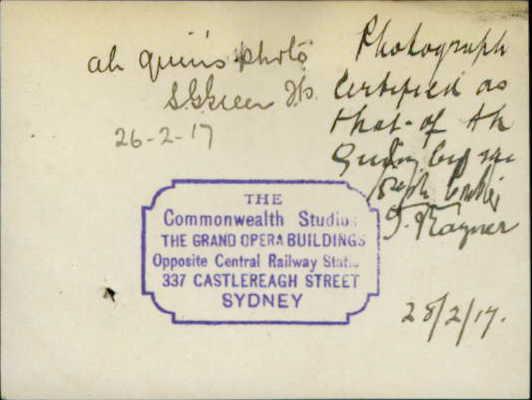 ah Quin's photo
26-2-17
Photograph
Certified as
that of Ah
by me
F. Rayner
28/2/17.
THE
Commonwealth Studios
THE GRAND OPERA BUILDINGS
Opposite Central Railway
337 CASTLEREAGH STREET
SYDNEY